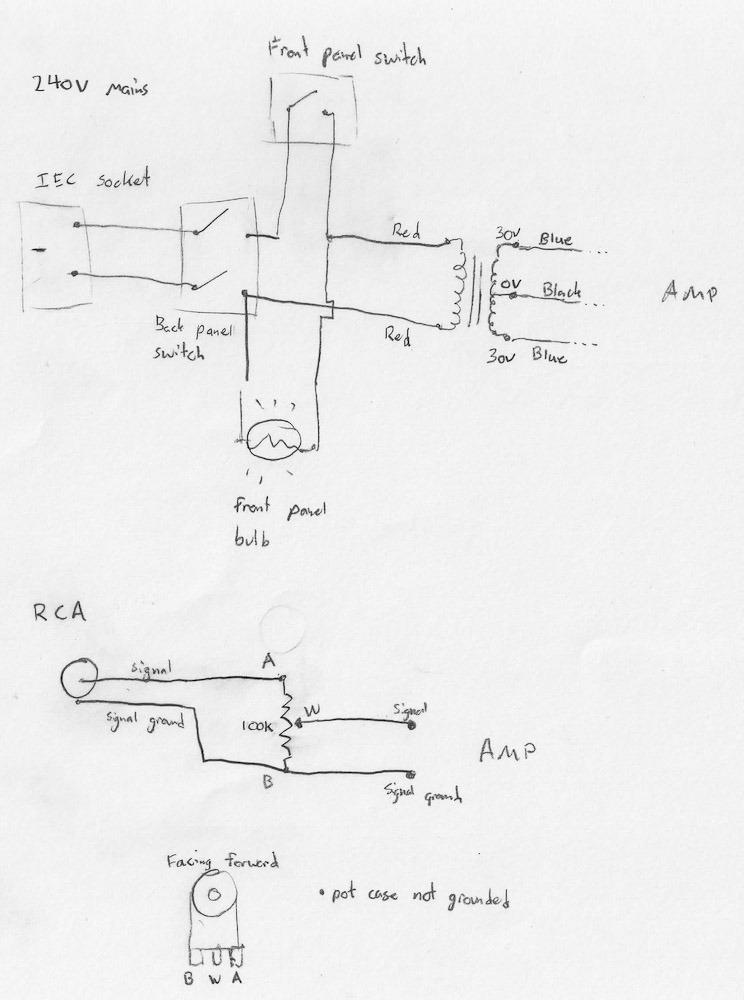 Front panel switch
240V Mains
IEC socket
Red
30V Blue
0V Black
AMP
Back panel
switch
Red
30V Blue
Front panel
bulb
RCA
signal
A
signal ground
100K
W
Signal
AMP
B
Signal ground
Facing forward
• pot case not grounded
B W A